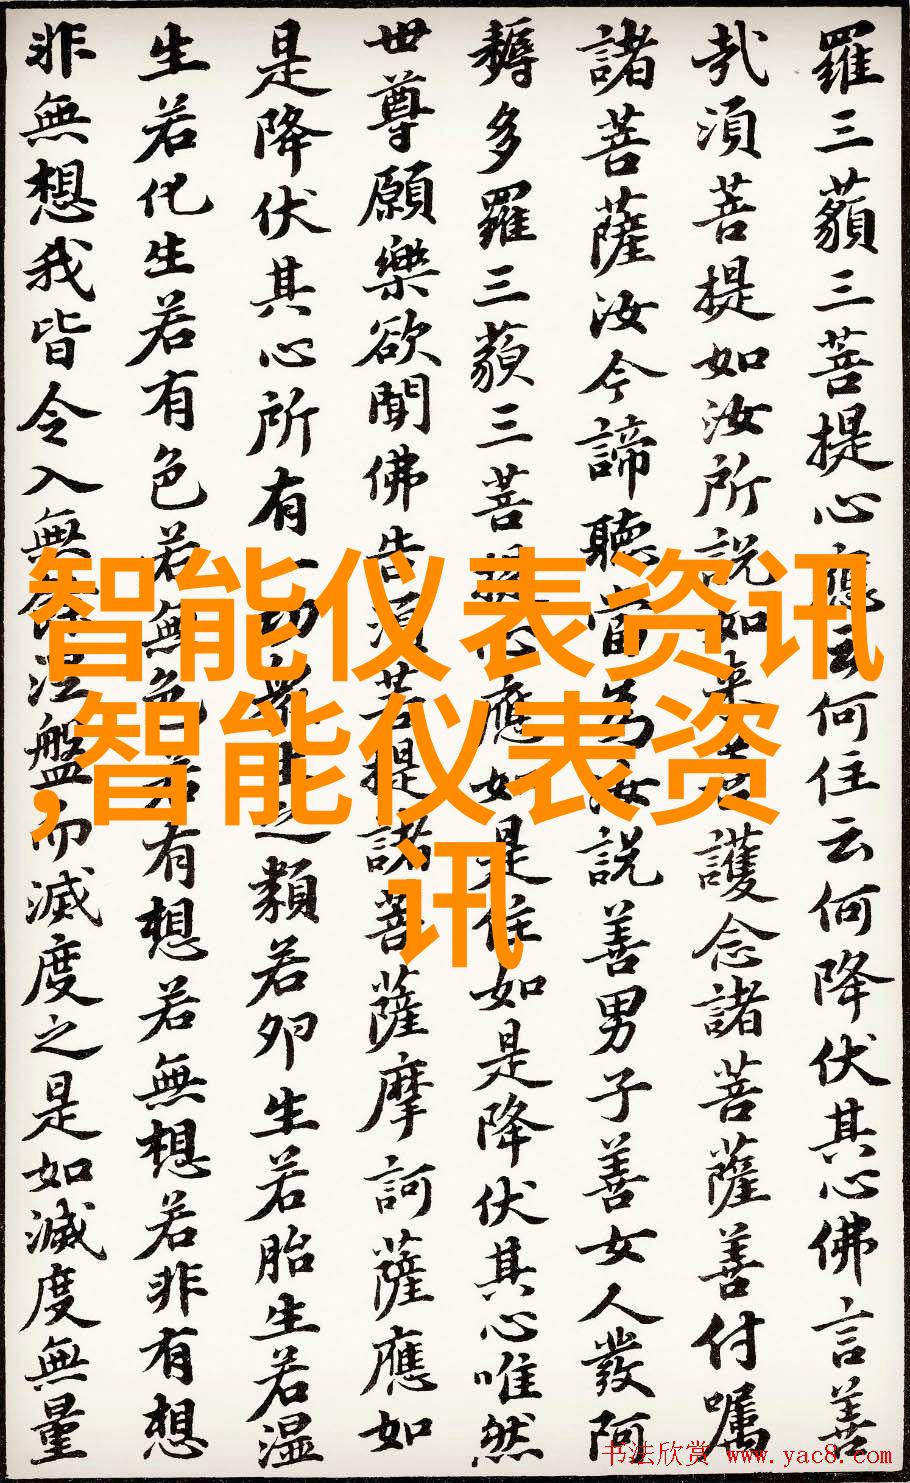 羅三藐三菩提心應云何住云何降伏其心佛言善
哉須菩提如汝所說如來善護念諸菩薩善付囑
諸菩薩汝今諦聽當為汝說善男子善女人發阿
耨多羅三藐三菩提心應如是住如是降伏其心唯然
世尊願樂欲聞佛告須菩提諸菩薩摩訶薩應如
是降伏其心所有一切眾生之類若卵生若胎生若濕
生若化生若有色若無色若有想若無想若非有想
非無想我皆令入無餘涅盤而滅度之是如滅度無量
智能仪表资讯
,智能仪表资
讯
书法欣赏 www.yac8.com